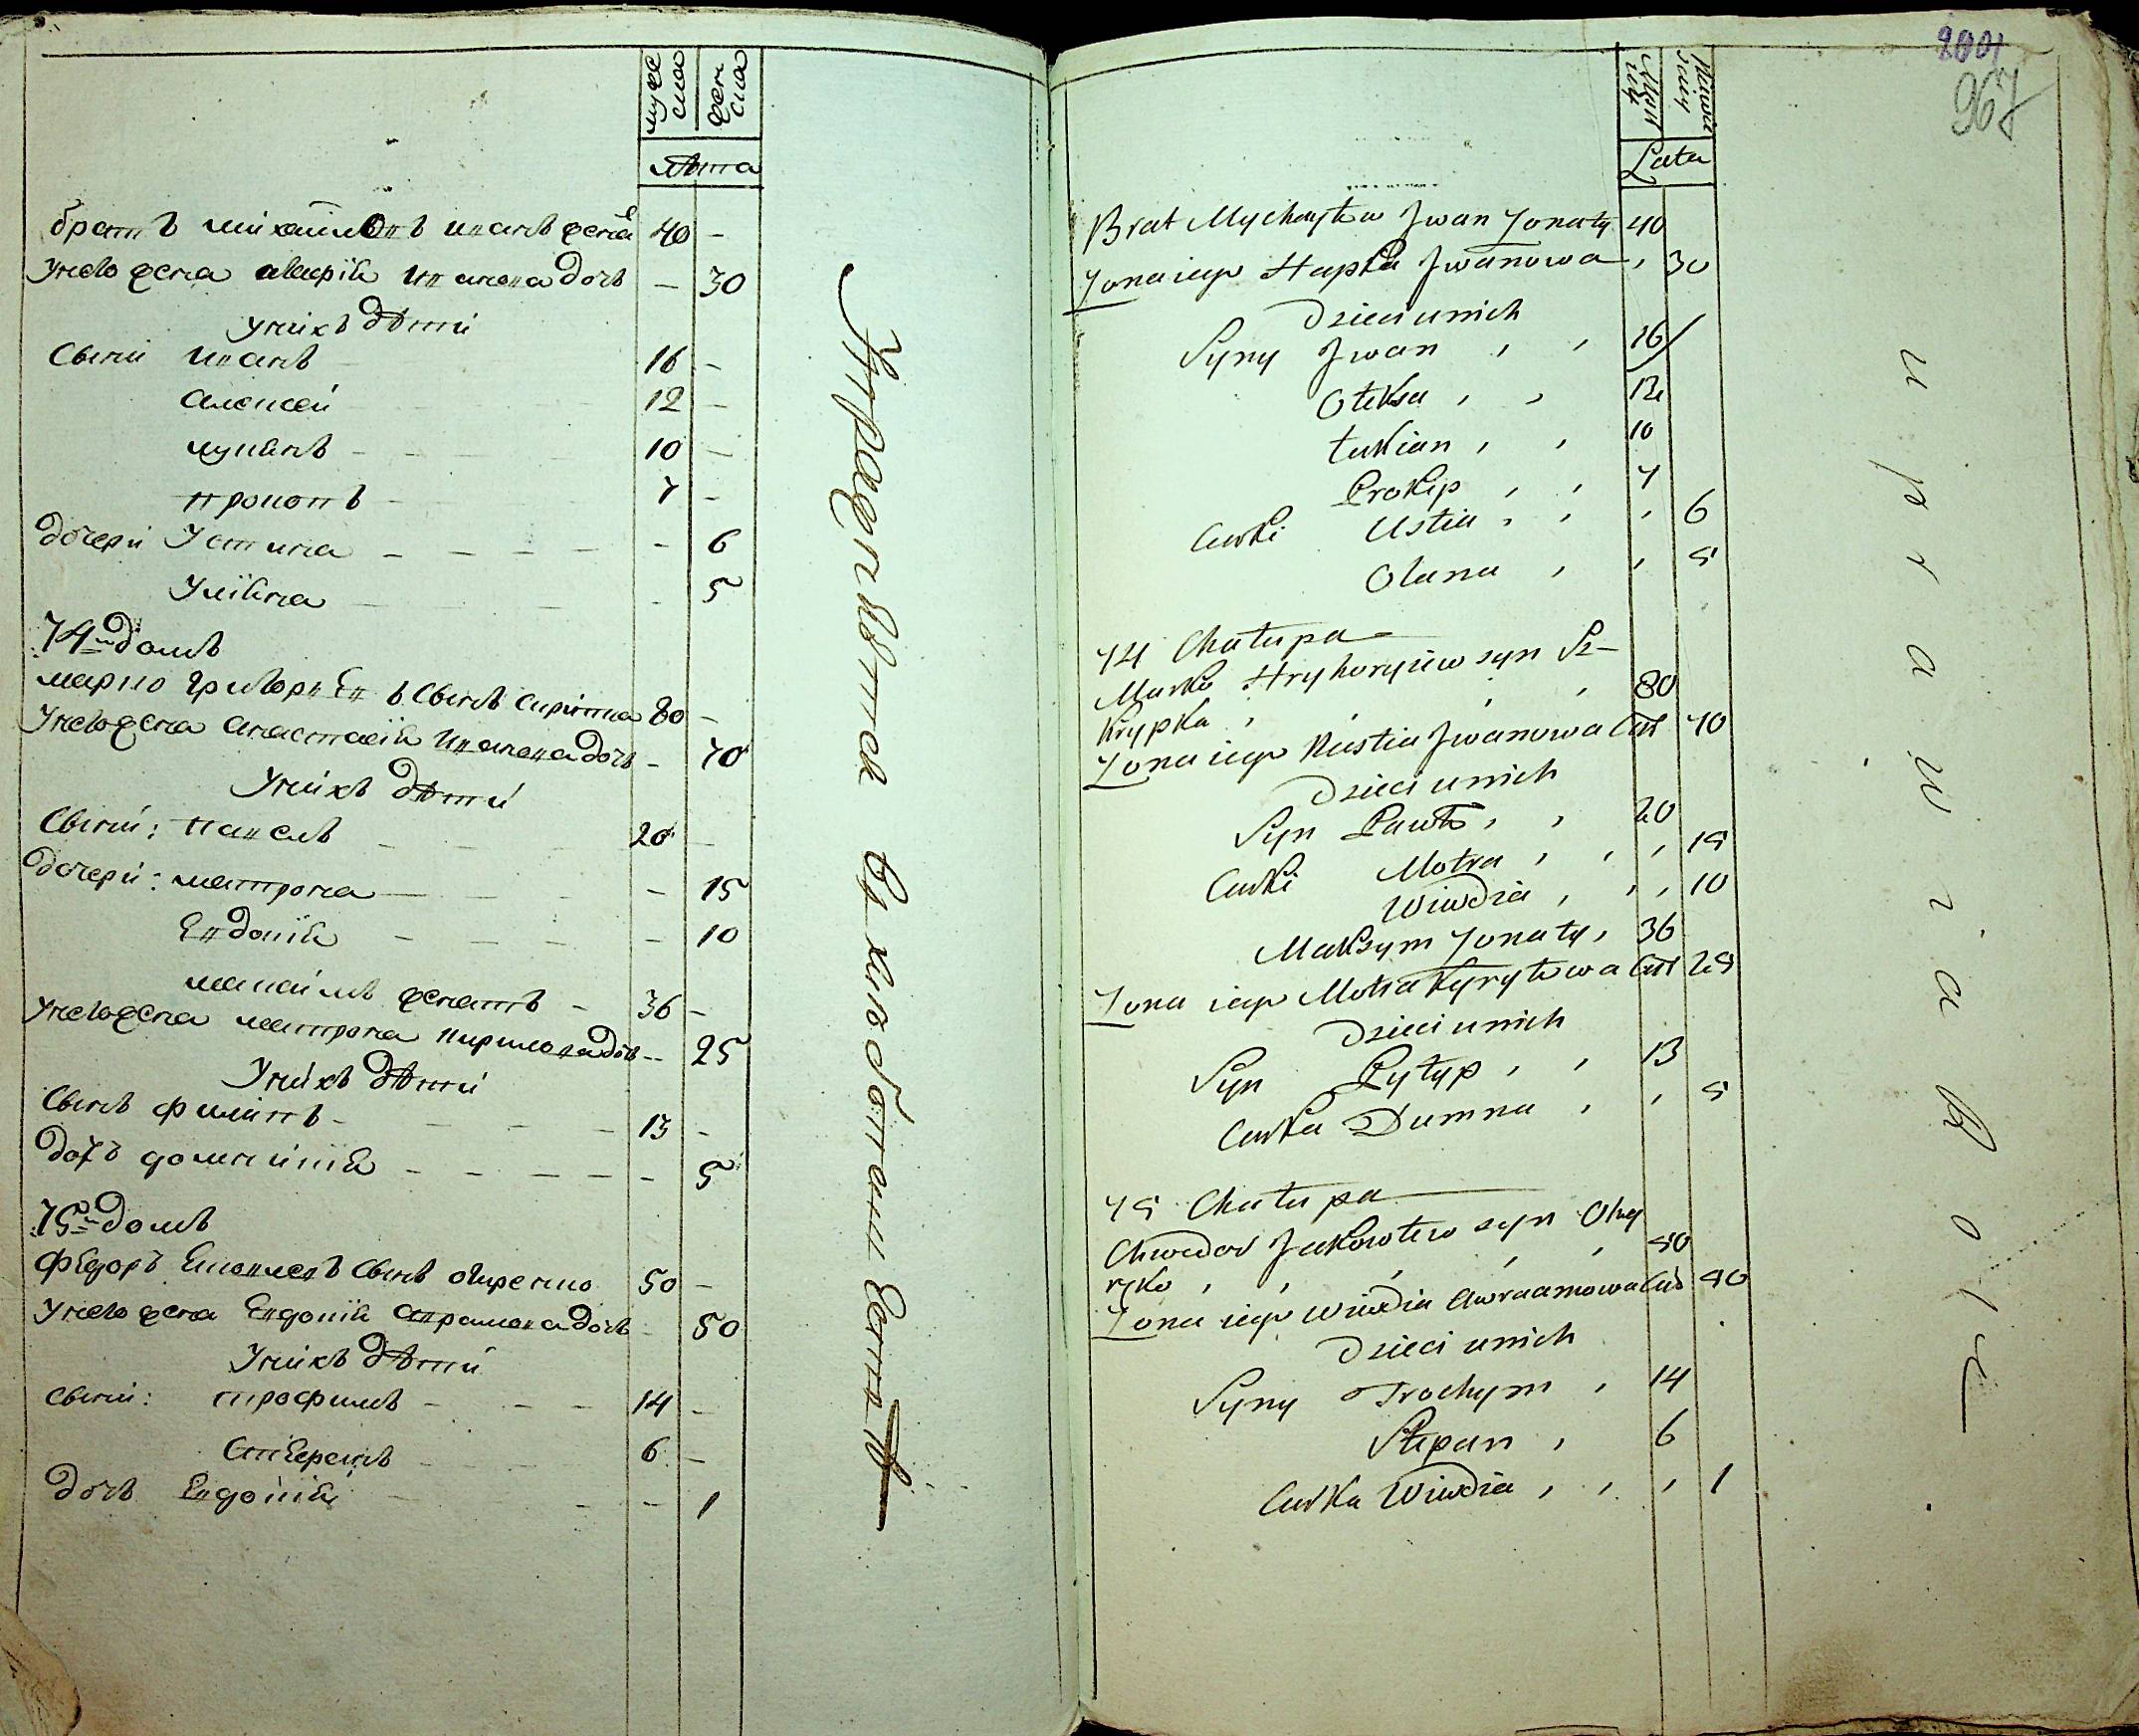 мужес
ска
жен
ска
лѣта
братъ михайловъ иванъ жена 40 –
У него жена Марія иванова дочь – 30
У нихъ дѣти
Сыни иванъ 16 –
Алексей 12 –
лукіянъ 10 –
прокопъ 7 –
дочери Устина – 6
Уліяна – 5
74 домъ
марко григориевъ сынъ 80 –
У него жена анастасія иванова дочь – 70
У нихъ дѣти
Сыни: павелъ 20 –
дочери: матрона – 15
Евдокія – 10
максимъ женатъ – 36 –
У него жена матрона кирилова дочь – 25
У нихъ дѣти
Сынъ филипъ – 13 –
дочъ домникія – 5
75 домъ
Федоръ сынъ 50 –
У него жена Евдокія аврамова дочь 50
У нихъ дѣти
сыни: трофимъ – 14 –
6 –
дочь Евдокія – 1
въ
2001
967
Lata
Brat Mychayłow Jwan Żonaty 40
Żona iego Hapka Jwanowa , 30
Dzieci u nich
Syny Jwan , , 16
Ołeksa , , 12
Łukian , , 10
Prokip , , 7
Curki Ustia , , , 6
Olana , , 5
74 Chałupa
Marko Hryhoryiew syn Sz–
krypka , , , , 80
Żona iego Nastia Jwanowa Cur 70
Dzieci u nich
Syn Pawło , , 20
Curki Motra , , , 15
Wiwdia , , , 10
Maksym Żonaty , 36
Żona iego Motra Kyryłowa Cur 25
Dzieci u nich
Syn Pyłyp , , 13
Curka Dumna , , 5
75 Chałupa
Chwedor Jakowlew syn Ohy
rko , , , , 50
Żona iego Wiwdia Awraamowa Cur 50
Dzieci u nich
Syny Trochym , 14
Stepan , 6
Curka Wiwdia , , , 1